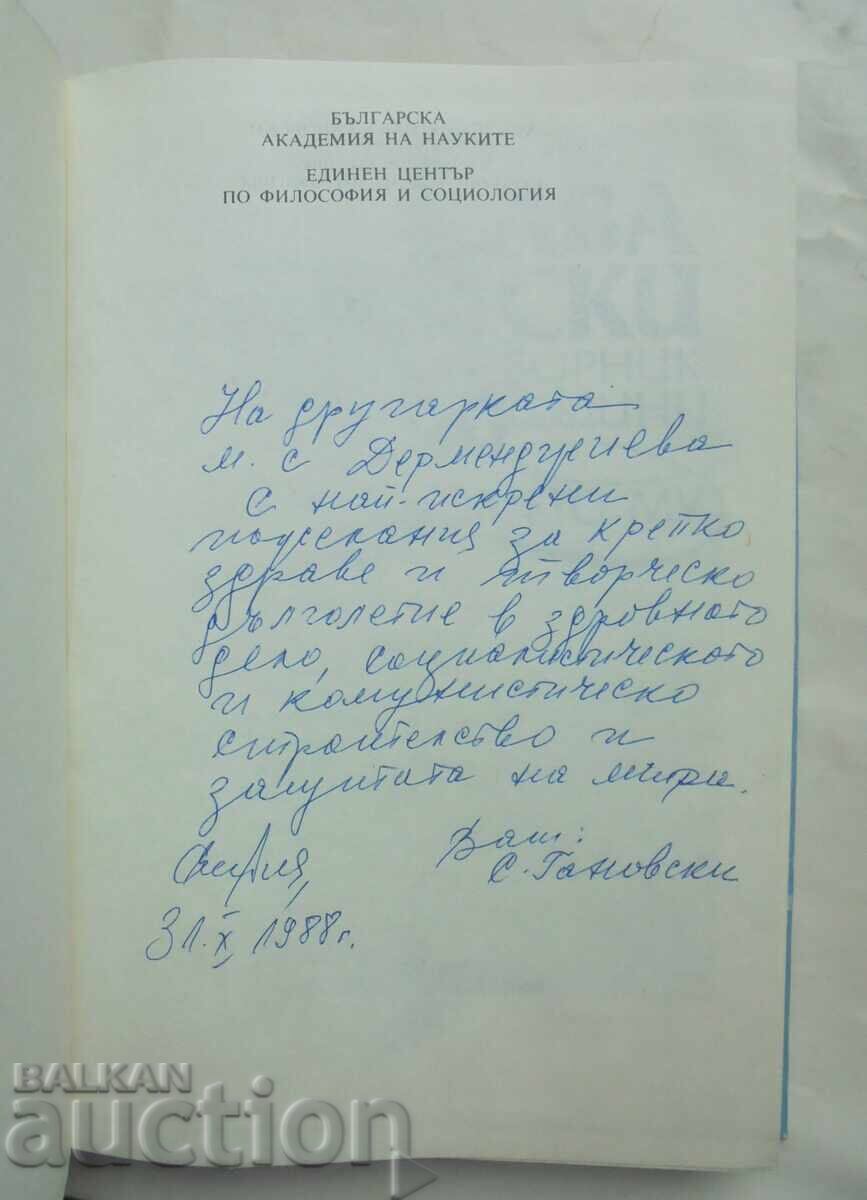 БЪЛГАРСКА
АКАДЕМИЯ НА НАУКИТЕ
ЕДИНЕН ЦЕНТЪР
ПО ФИЛОСОФИЯ И СОЦИОЛОГИЯ
На другарката
М. С Дерменджиева
с най-искрени
пожелания за крепко
здраве и творческо
дълголетие в здравното
дело, социалистическото
и комунистическо
строителство и
защитата на мира.
Ваш:
София, С. Гановски
31.X.1988 г.
BALKAN
auction